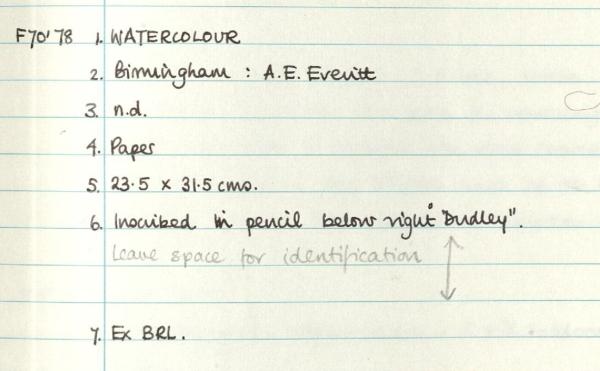 F70'78 1. WATERCOLOUR
2. Birmingham : A.E. Everitt
3. n.d.
4. Paper
5. 23.5 x 31.5 cms.
6. Inscribed in pencil below right "Dudley".
Leave space for identification
7. Ex BRL.